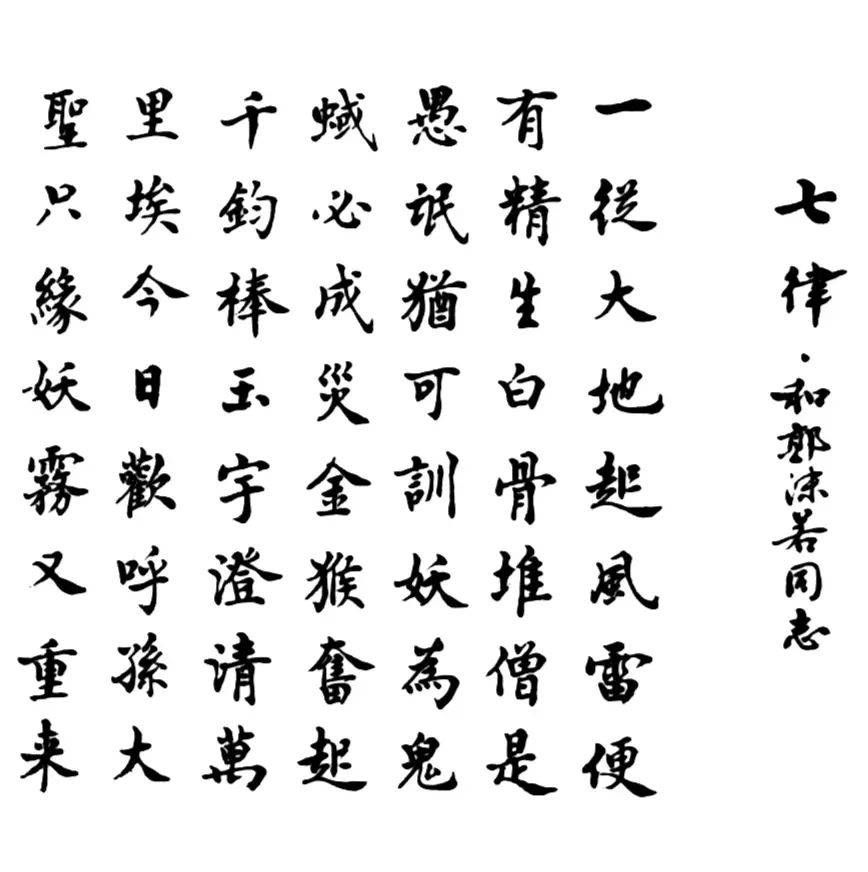 七律·和郭沫若同志
一從大地起風雷便
有精生白骨堆僧是
愚氓猶可訓妖為鬼
蜮必成災金猴奮起
千鈞棒玉宇澄清萬
里埃今日歡呼孫大
聖只緣妖霧又重来